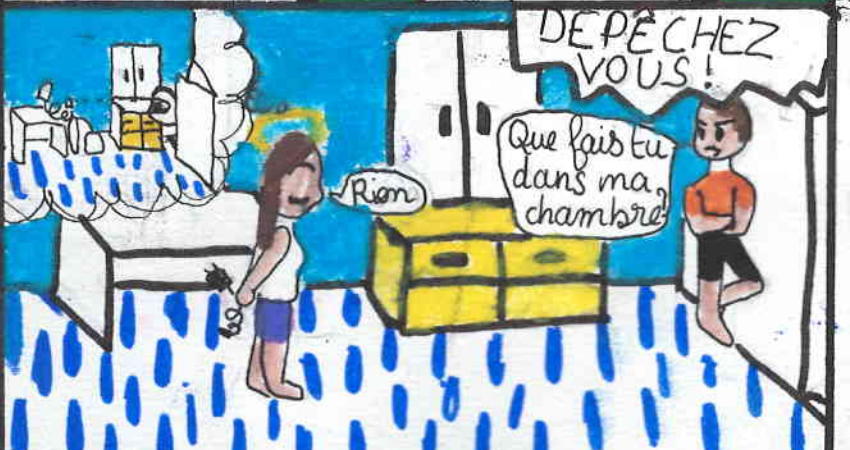 DÉPÊCHEZ
VOUS!
Que fais tu
dans ma
chambre?
Rien